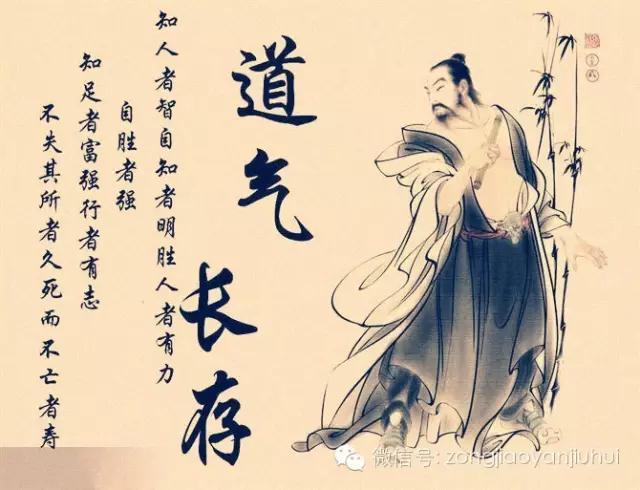 道气
长存
知人者智自知者明胜人者有力
自胜者强
知足者富强行者有志
不失其所者久死而不亡者寿
微信号: zongjiaoyanjiuhui